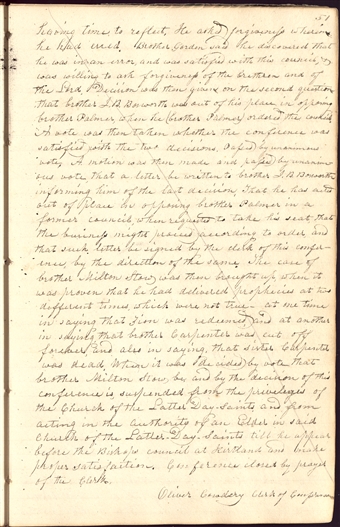 51
having time to reflect, He ask'd forgiveness wherein
he had erred, Brother Gordon said he discovered that
he was in an error, and was satisfied with this council, &
was willing to ask forgiveness of the brethren and of
the Lord, Decision was then given on the second question
that brother J. B. Bosworth was out of his place in opposing
brother Palmer, when he (brother Palmer) ordered the council
A vote was then taken whether the conference was
satisfied with the two decisions. Passed by unanimous
vote. A motion was then made and passed by unanim-
ous vote that a letter be written to brother J. B. Bosworth
informing him of the last decision, That he has acted
out of place in opposing brother Palmer in a
former council when requested to take his seat, that
the business might proceed according to order, and
that such letter be signed by the clerk of this confer-
ence, by the direction of the same. The case of
brother Milton Stow, was then brought up, when it
was proven that he had delivered prophecies at two
different times, which were not true at one time
in saying that Zion was redeemed, and at another
in saying that brother Carpenter was cut off
forever, and also in saying, that sister Carpenter
was dead. When it was decided by vote that
brother Milton Stow, by and by the decision of this
conference is suspended from the privileges of
the Church of the Latter Day Saints and from
acting in the authority of an Elder in said
Church of the Latter Day Saints till he appear
before the Bishops council at Kirtland and make
proper satisfaction. Conference closed by prayer
of the Clerk.
Oliver Cowdery Clerk of Conference